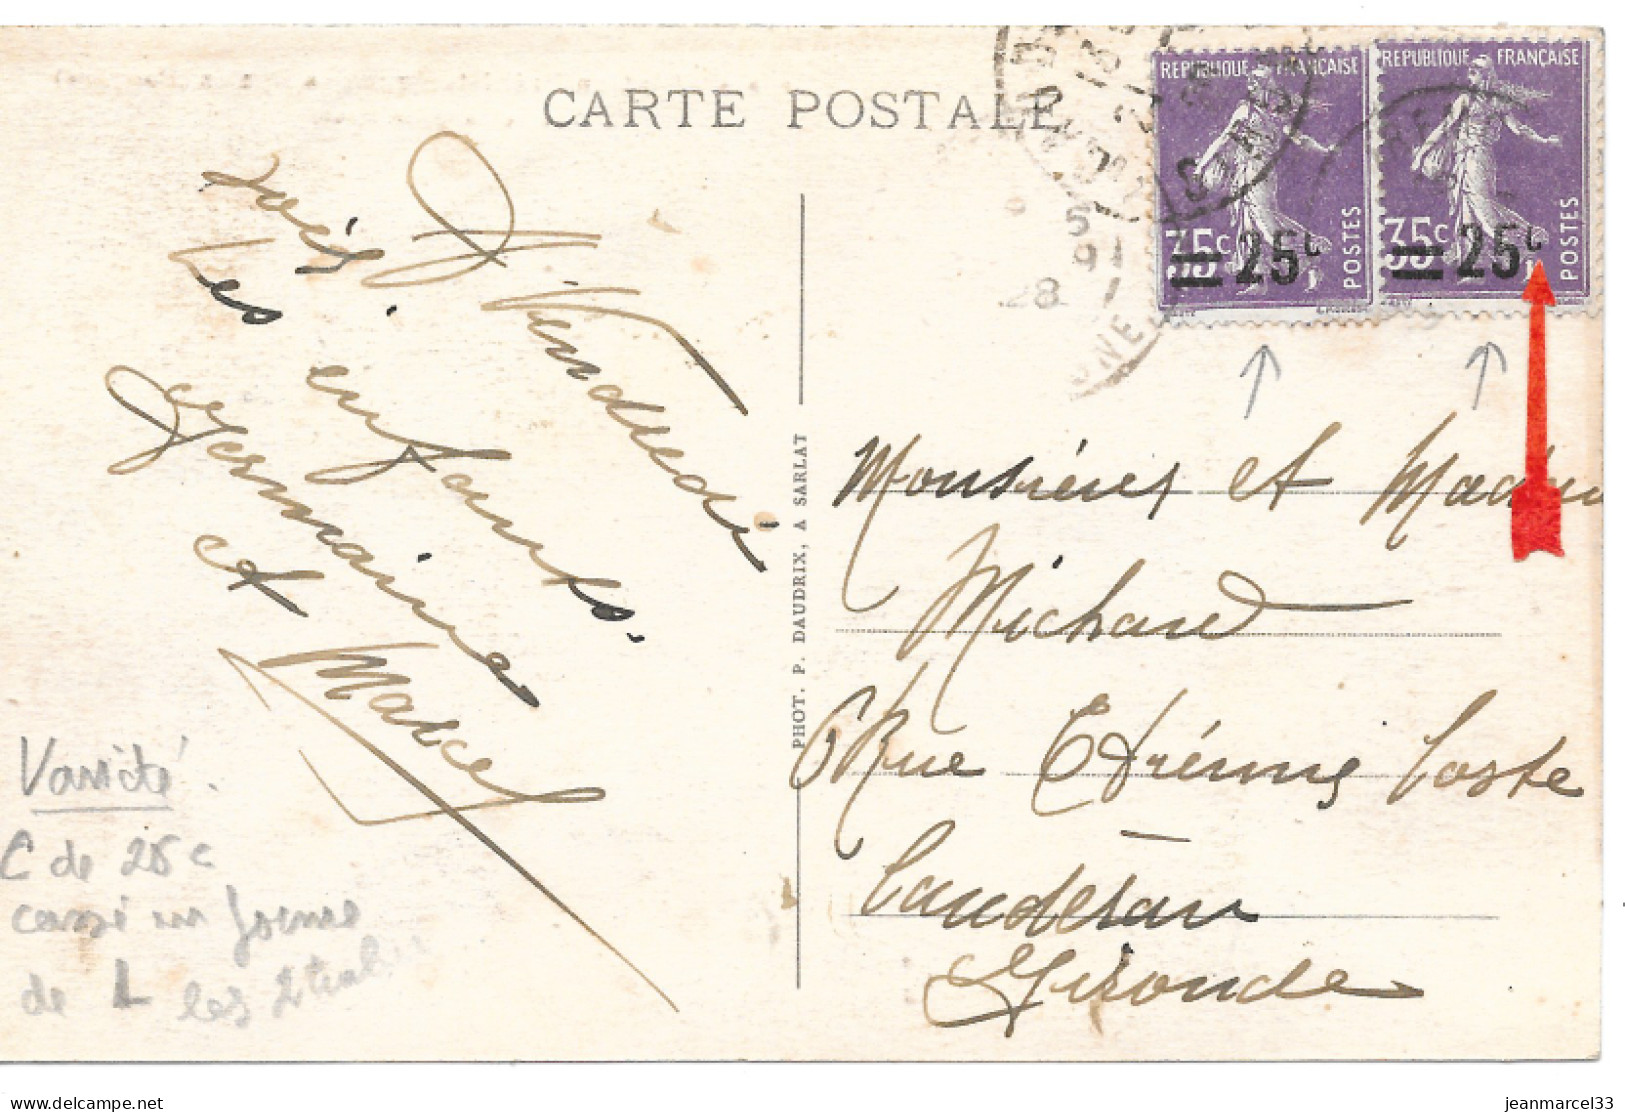 CARTE POSTALE
REPUBLIQUE FRANÇAISE
35c
25c
POSTES
REPUBLIQUE FRANÇAISE
35c
25c
POSTES
5
91
28
à Vendredi
Vos enfants.
Germaine
et Marcel
PHOT. P. DAUDRIX, A SARLAT
Monsieur et Madame
Michaud
6 Rue Etienne Coste
Caudéran
Gironde
Variété.
C de 25c
cassé en forme
de L les 2 timbres
delcampe.net
jeanmarcel33